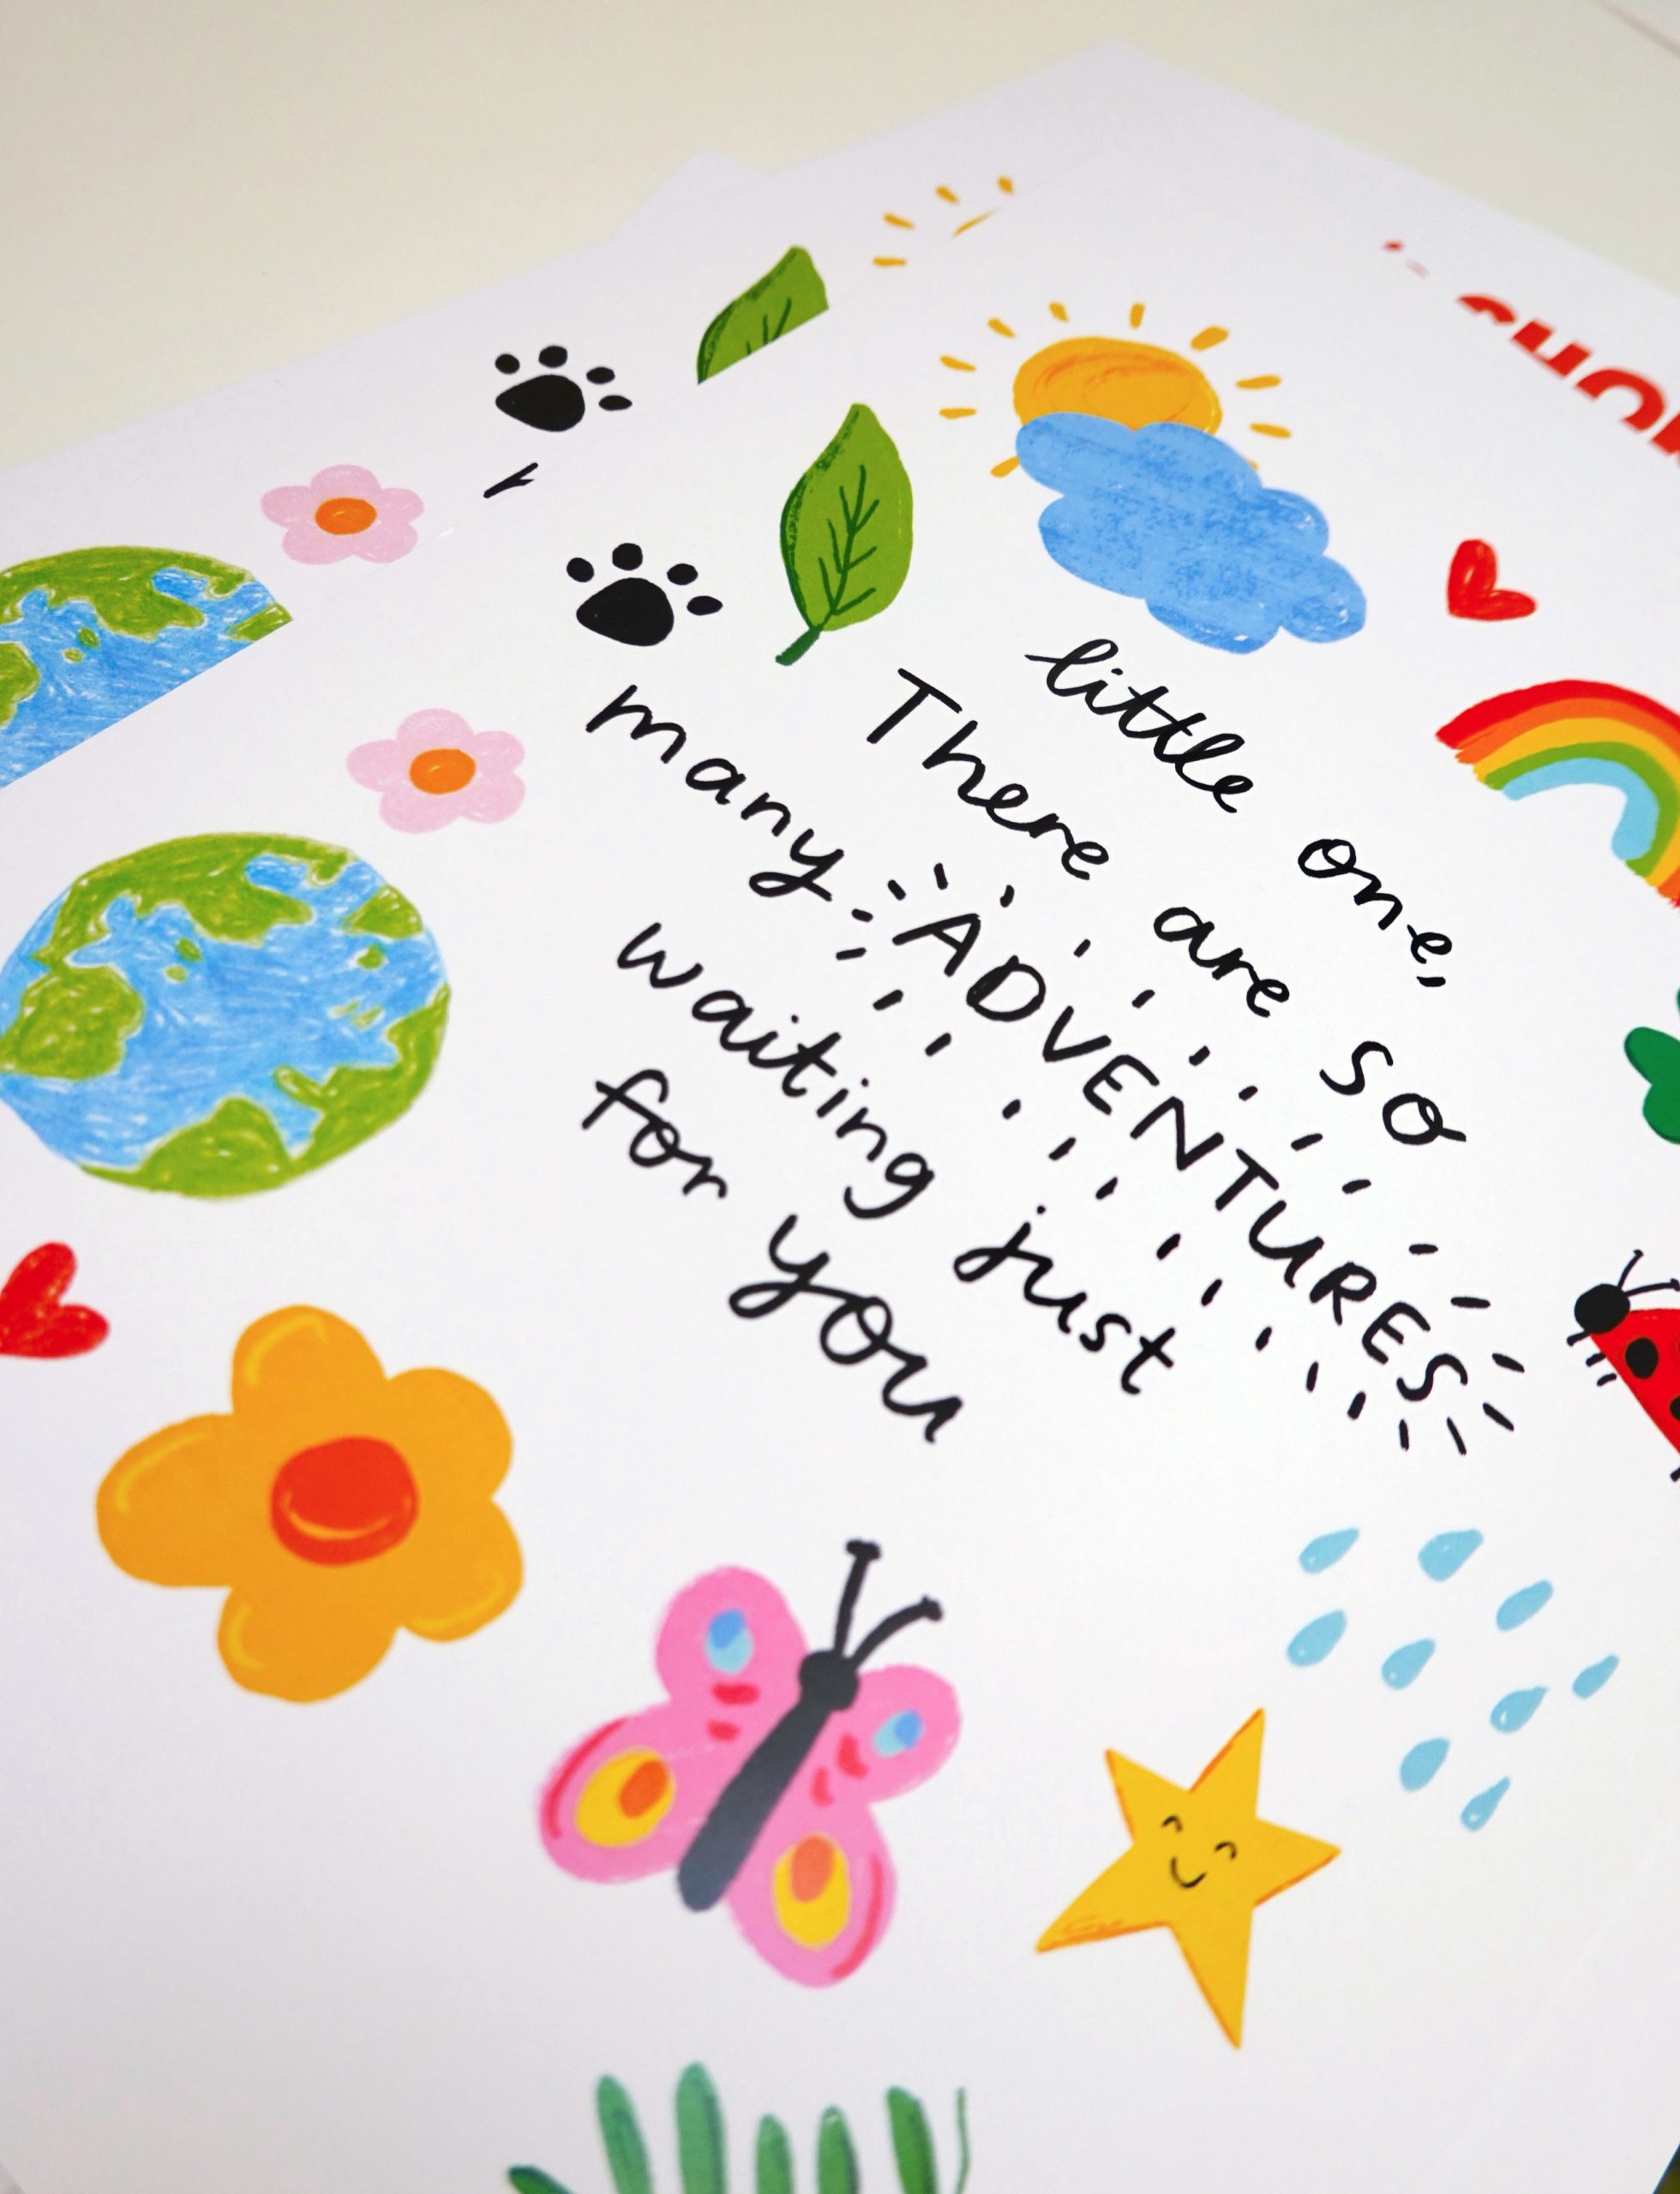 little one,
There are so
many ADVENTURES
waiting just
for you